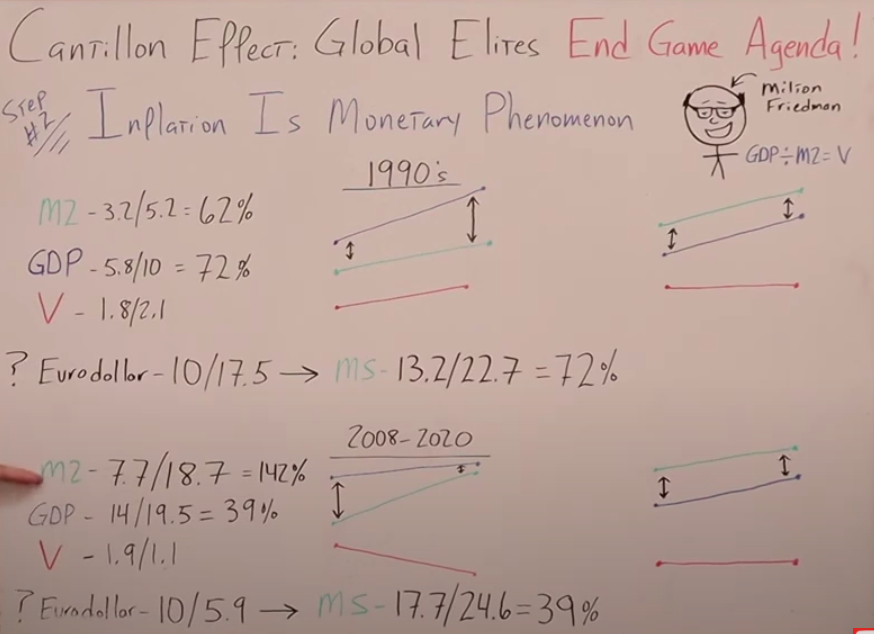 Cantillon Effect: Global Elites End Game Agenda!
Step #2
Inflation Is Monetary Phenomenon
Milton Friedman
GDP÷M2=V
1990's
M2 - 3.2/5.2 = 62%
GDP - 5.8/10 = 72%
V - 1.8/2.1
? Eurodollar - 10/17.5 → MS - 13.2/22.7 = 72%
2008-2020
M2 - 7.7/18.7 = 142%
GDP - 14/19.5 = 39%
V - 1.9/1.1
? Eurodollar - 10/5.9 → MS - 17.7/24.6 = 39%